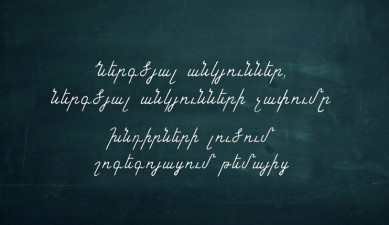 Ներգծյալ անկյուններ,
ներգծյալ անկյունների չափումը
Խնդիրների լուծում
շրջագոյացում թեմայից